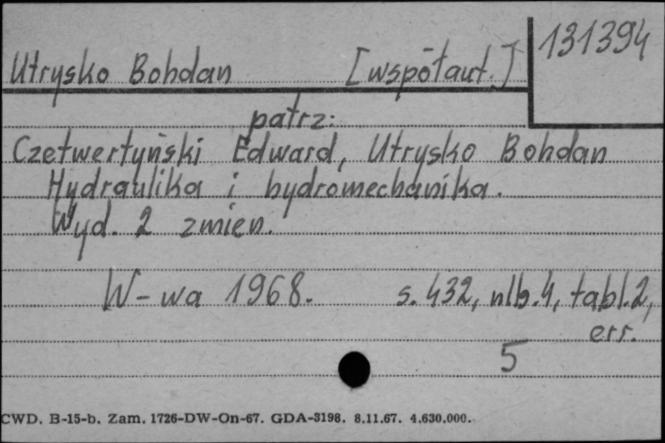 131394
Utrysko Bohdan [współaut.]
patrz:
Czetwertyński Edward, Utrysko Bohdan
Hydraulika i hydromechanika.
Wyd. 2 zmien.
W-wa 1968. s. 432, nlb. 4, tabl. 2,
err.
5
CWD. B-15-b. Zam. 1726-DW-On-67. GDA-3198. 8.11.67. 4.630.000.